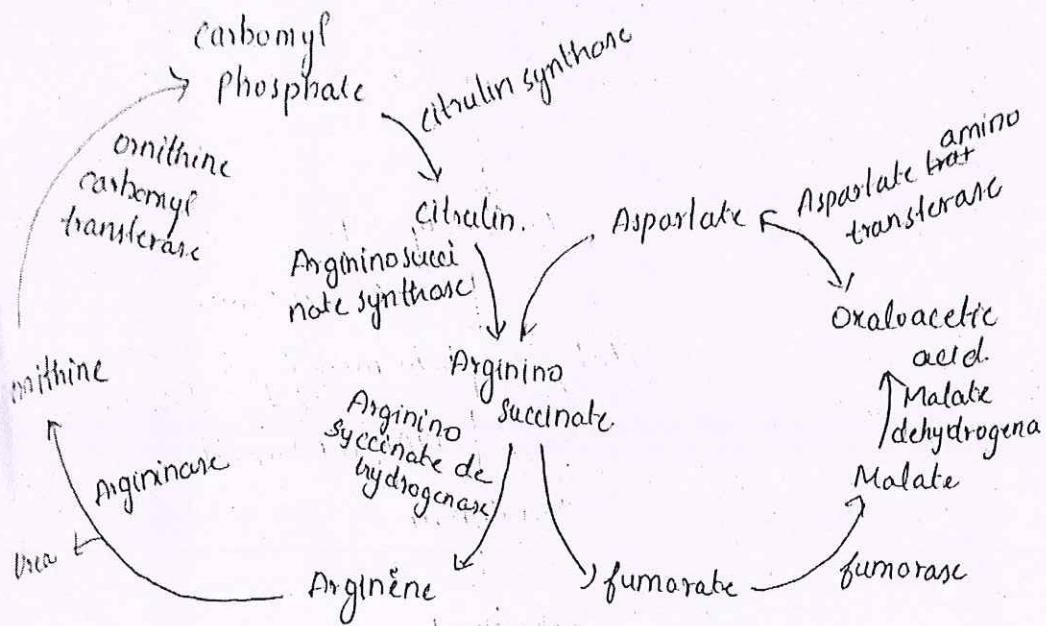 Carbomyl
Phosphate
Citrulin synthase
Ornithine
carbomyl
transferase
Citrulin.
Argininosucci
nate synthase
Aspartate
Aspartate trat amino
transferase
Oxaloacetic
acid.
Malate
dehydrogena
Malate
fumorase
fumarate
Arginino
succinate
Arginino
succinate de
hydrogenase
Arginene
Argininase
Urea
rnithine